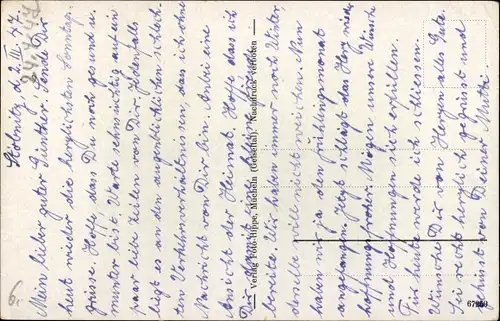 Stöbnitz d 2. III. 47.
Mein lieber guter Günther. Sende Dir
heut wieder die herzlichsten Sonntags-
grüsse. Hoffe das Du noch gesund u.
munter bist. Warte sehnsüchtig auf ein
paar liebe Zeilen von Dir. Jedenfalls
liegt es an den augenblicklichen schlech-
ten Verkehrsverhältnissen, das ich ohne
Nachricht von Dir bin. Anbei eine
Ansicht der Heimat. Hoffe das ich
Dir damit eine kleine Freude
bereite. Wir haben immer noch Winter,
derselbe will nicht weichen. Nun
haben wir ja den Frühlingsmonat
angefangen. Jetzt schlägt das Herz wieder
hoffnungsfroher. Mögen unsre Wünsche
und Hoffnungen sich erfüllen.
Für heute werde ich schliessen.
Wünsche Dir von Herzen alles Gute.
Sei recht herzlich gegrüsst und
geküsst von Deiner Mutti.
Verlag Foto-Hippe, Mücheln (Geiseltal). Nachdruck verboten
67259